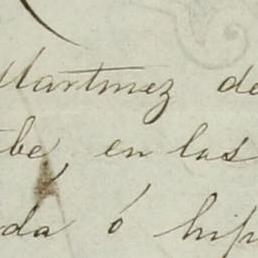 Martinez de
be, en las
da ó hip